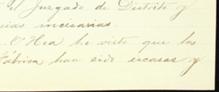 el Juzgado de Distrito y
cias necesarias.
C. Hea he visto que las
Fábrica, han sido escasas y